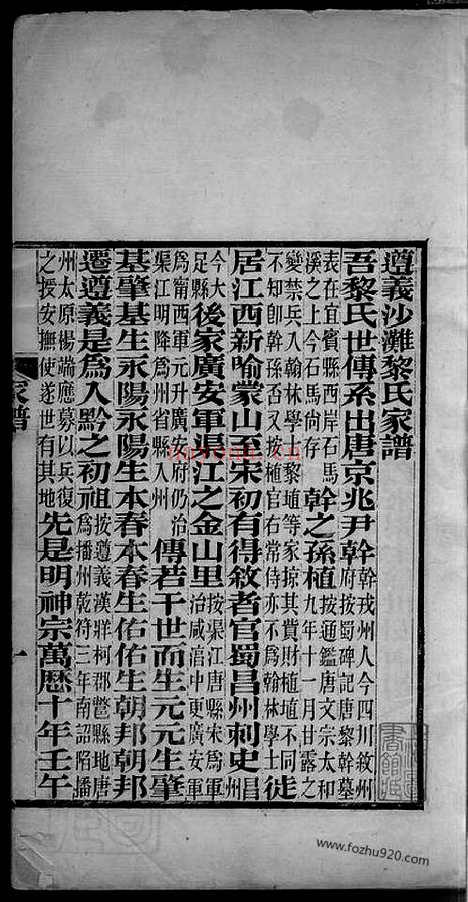 遵義沙灘黎氏家譜
吾黎氏世傳系出唐京兆尹幹幹戎州人今四川敘州府按蜀碑記唐黎幹墓
表在宜賓縣西岸石馬溪之上今石馬尚存幹之孫植按通鑑唐文宗太和九年十一月甘露之
變禁兵入翰林學士黎埴等家掠其貲財植埴不同不知卽幹孫否又按植官右常侍亦不爲翰林學士徙
居江西新喻蒙山至宋初有得敘者官蜀昌州刺史昌州
今大足縣後家廣安軍渠江之金山里按渠江唐縣宋爲軍治咸淳中更廣安軍
爲甯西軍元升廣安府仍治渠江明降爲州省縣入州傳若干世而生元元生肇
基肇基生永陽永陽生本春本春生佑佑生朝邦朝邦
遷遵義是爲入黔之初祖按遵義漢牂柯郡鄨縣地唐爲播州乾符三年南詔陷播
州太原楊端應募以兵復之授安撫使遂世有其地先是明神宗萬歷十年壬午
家譜
一
www.fozhu920.com